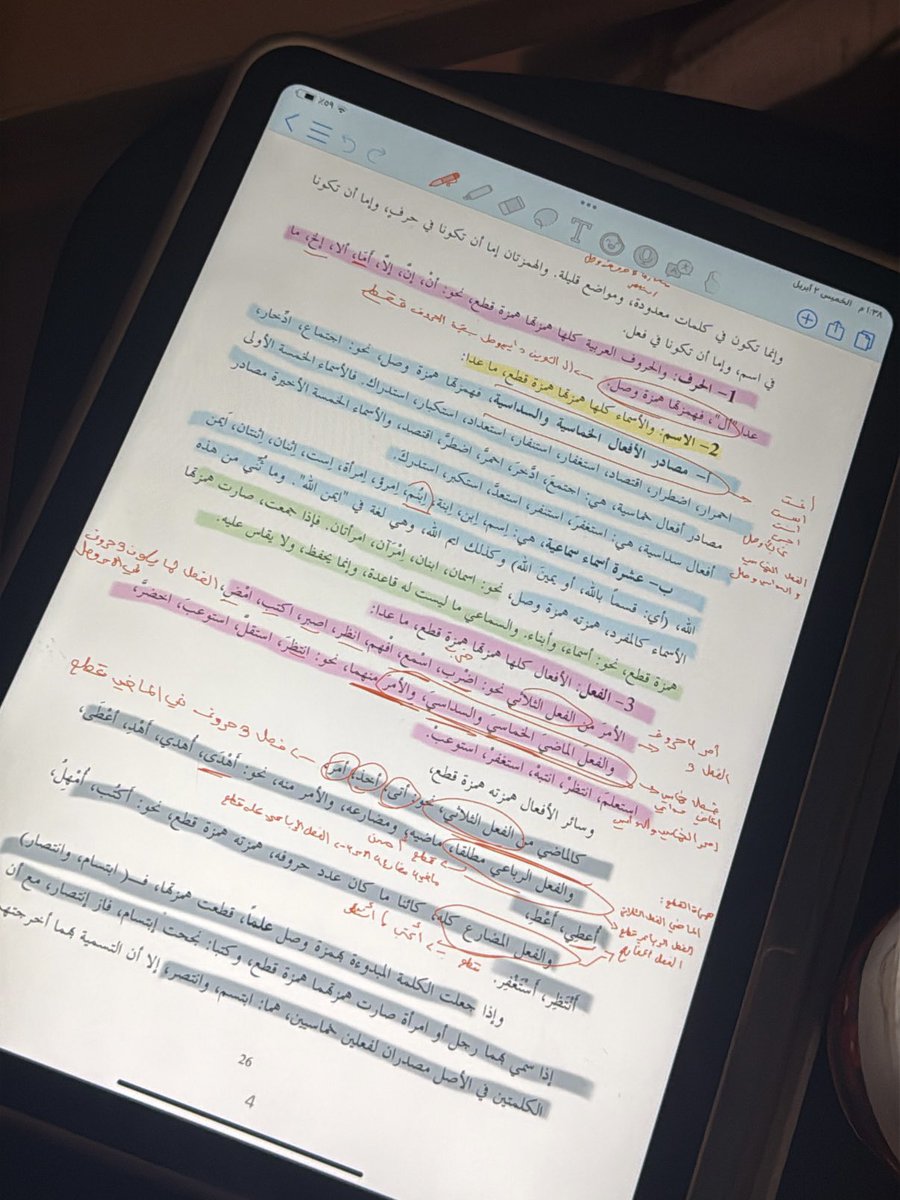 ١:٣٨ م الخميس ٢ أبريل
٥٩٪
وإنما تكون في كلمات معدودة، ومواضع قليلة. والهمزتان إما أن تكونا في حرف، وإما أن تكونا
في اسم، وإما أن تكونا في فعل.
1- الحرف: والحروف العربية كلها همزتها همزة قطع، نحو: أنْ، إنَّ، إلّا، أمّا، ألا، إلخ، ما
عدا "أل"، فهمزتها همزة وصل.
2- الاسم: والأسماء كلها همزتها همزة قطع، ما عدا:
أ- مصادر الأفعال الخماسية والسداسية، فهمزتها همزة وصل، نحو: اجتماع، ادّخار،
احمرار، اضطرار، اقتصاد، استغفار، استنفار، استعداد، استكبار، استدراك. فالأسماء الخمسة الأولى
مصادر أفعال خماسية، هي: اجتمعَ، ادَّخر، احمرَّ، اضطرَّ، اقتصد، والأسماء الخمسة الأخيرة مصادر
أفعال سداسية، هي: استغفر، استنفر، استعدَّ، استكبر، استدركَ.
ب- عشرة أسماء سماعية، هي: اِسم، اِبن، اِبنة، اِبنُم، اِمرؤ، اِمرأة، اِست، اِثنان، اِثنتان، اَيمن
الله، (أي: قسماً بالله، أو يمينَ الله) وكذلك ايم الله، وهي لغة في "ايمن الله". وما ثُنّي من هذه
الأسماء كالمفرد، همزته همزة وصل، نحو: اسمان، ابنان، امْرَآن، امرأتان. فإذا جمعت، صارت همزتها
همزة قطع، نحو: أسماء، وأبناء. والسماعي ما ليست له قاعدة، وإنما يحفظ، ولا يقاس عليه.
3- الفعل: الأفعال كلها همزتها همزة قطع، ما عدا:
الأمرَ من الفعل الثلاثي نحو: اضرب، اسْمع، افْهم، انظر، اصبر، اكتب، امْضِ،
والفعل الماضيَ الخماسيَ والسداسيَ، والأمرَ منهما، نحو: انتظرَ، استقلَّ، استوعبَ، اخضرَّ،
استعلمَ، انتظرْ، انتبهْ، استغفرْ، استوعبْ.
وسائر الأفعال همزته همزة قطع،
كالماضي من الفعل الثلاثي، نحو: أتى، أخذ، أمرَ،
والفعل الرباعي مطلقا، ماضيه، ومضارعه، والأمر منه، نحو: أهْدَى، أُهدي، أهْدِ، أعْطَى،
أُعطِي، أعْطِ،
والفعل المضارع كله، كائنا ما كان عدد حروفه، همزته همزة قطع، نحو: أكتُب، أُمْهِلُ،
أَنْتَظِر، أَسْتَغْفِر.
وإذا جعلت الكلمة المبدوءة بهمزة وصل علماً، قطعت همزتها، فــ( ابتسام، وانتصار)
إذا سمي بهما رجل أو امرأة صارت همزتهما همزة قطع، وكتبا: نجحت إبتسام، فاز إنتصار، مع أن
الكلمتين في الأصل مصدران لفعلين خماسيين، هما: ابتسم، وانتصر، إلا أن التسمية بهما أخرجتهما
26
4
الفعل 3 حروف في الماضي قطع
همزات القطع:
الماضي الفعل الثلاثي
الفعل الرباعي قطع
الفعل المضارع